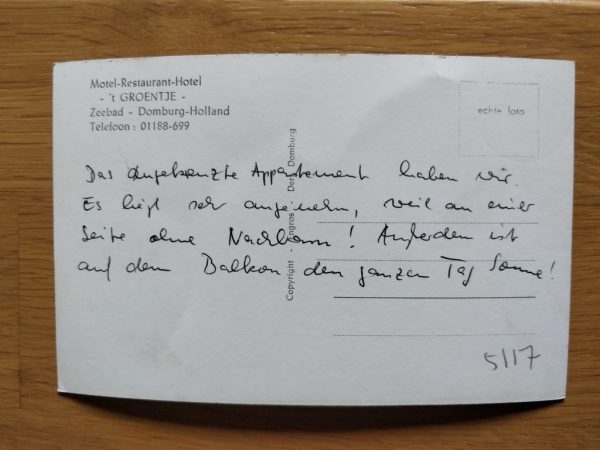 Motel-Restaurant-Hotel
- 't GROENTJE -
Zeebad - Domburg-Holland
Telefoon : 01188-699
echte foto
Das angekreuzte Appartement haben wir.
Es liegt sehr angenehm, weil an einer
Seite ohne Nachbarn! Außerdem ist
auf dem Balkon den ganzen Tag Sonne!
Copyright - Engros - Derk Domburg
5117